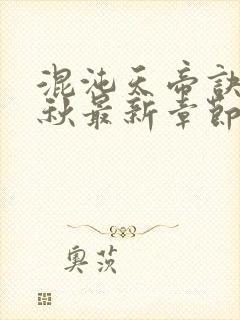 混沌天帝诀
秋最新章节
奥茨